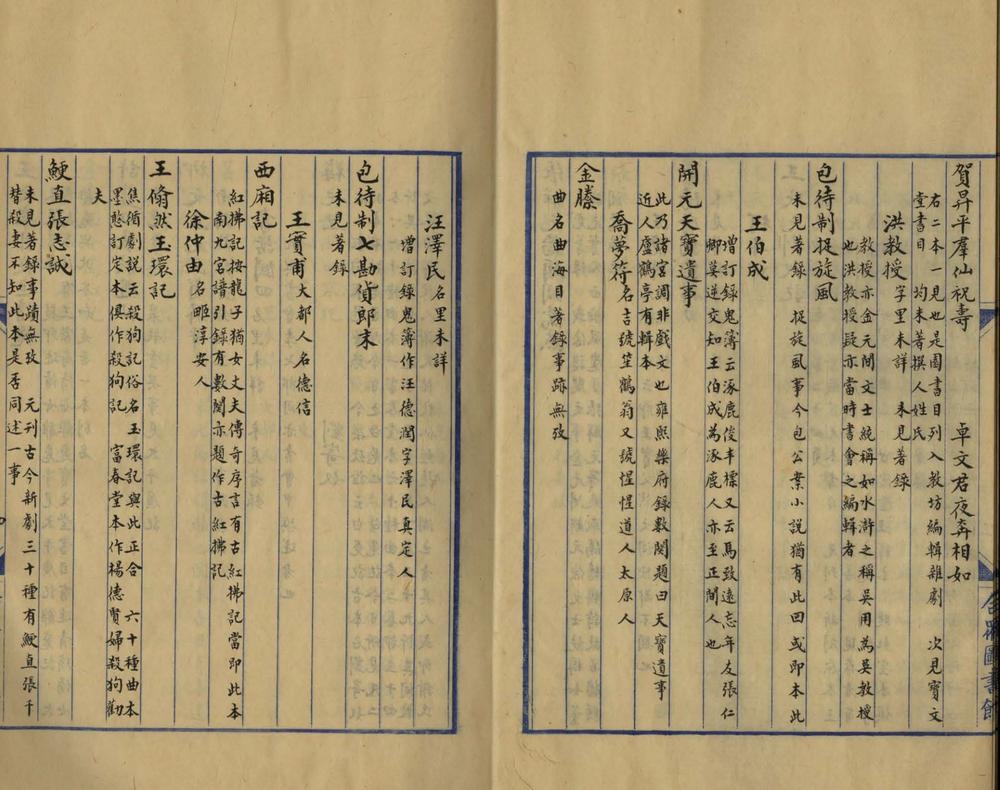 賀昇平羣仙祝壽　卓文君夜奔相如
右二本一見也是園書目列入教坊編輯雜劇　次見寶文
堂書目　均未著撰人姓氏
洪教授 字里未詳　未見著錄
教授亦金元間文士統稱如水滸之稱吳用為吳教授
也洪教授殆亦當時書會之編輯者
包待制捉旋風
未見著錄　捉旋風事今包公案小說猶有此回或即本此
王伯成
增訂錄鬼簿云涿鹿俊丰標又云馬致遠忘年友張仁
卿莫逆交知王伯成為涿鹿人亦至正間人也
開元天寶遺事
此乃諸宮調非戲文也雍熙樂府錄數闋題曰天寶遺事
近人盧鶴亭有輯本
喬夢符 名吉號笙鶴翁又號惺惺道人太原人
金縢
曲名曲海目著錄事跡無攷
汪澤民 名里未詳
增訂錄鬼簿作汪德潤字澤民真定人
包待制七勘貨郎末
未見著錄
王實甫 大都人名德信
西廂記
紅拂記按龍子猶女丈夫傳奇序言有古紅拂記當即此本
南九宮譜引錄有數闋亦題作古紅拂記
徐仲由 名𤲞淳安人
王翛然玉環記
焦循劇說云殺狗記俗名玉環記與此正合　六十種曲本
墨憨訂定本俱作殺狗記　富春堂本作楊德賢婦殺狗勸
夫
鯁直張志誠
未見著錄事蹟無攷　元刊古今新劇三十種有鯁直張千
替殺妻不知此本是否同述一事